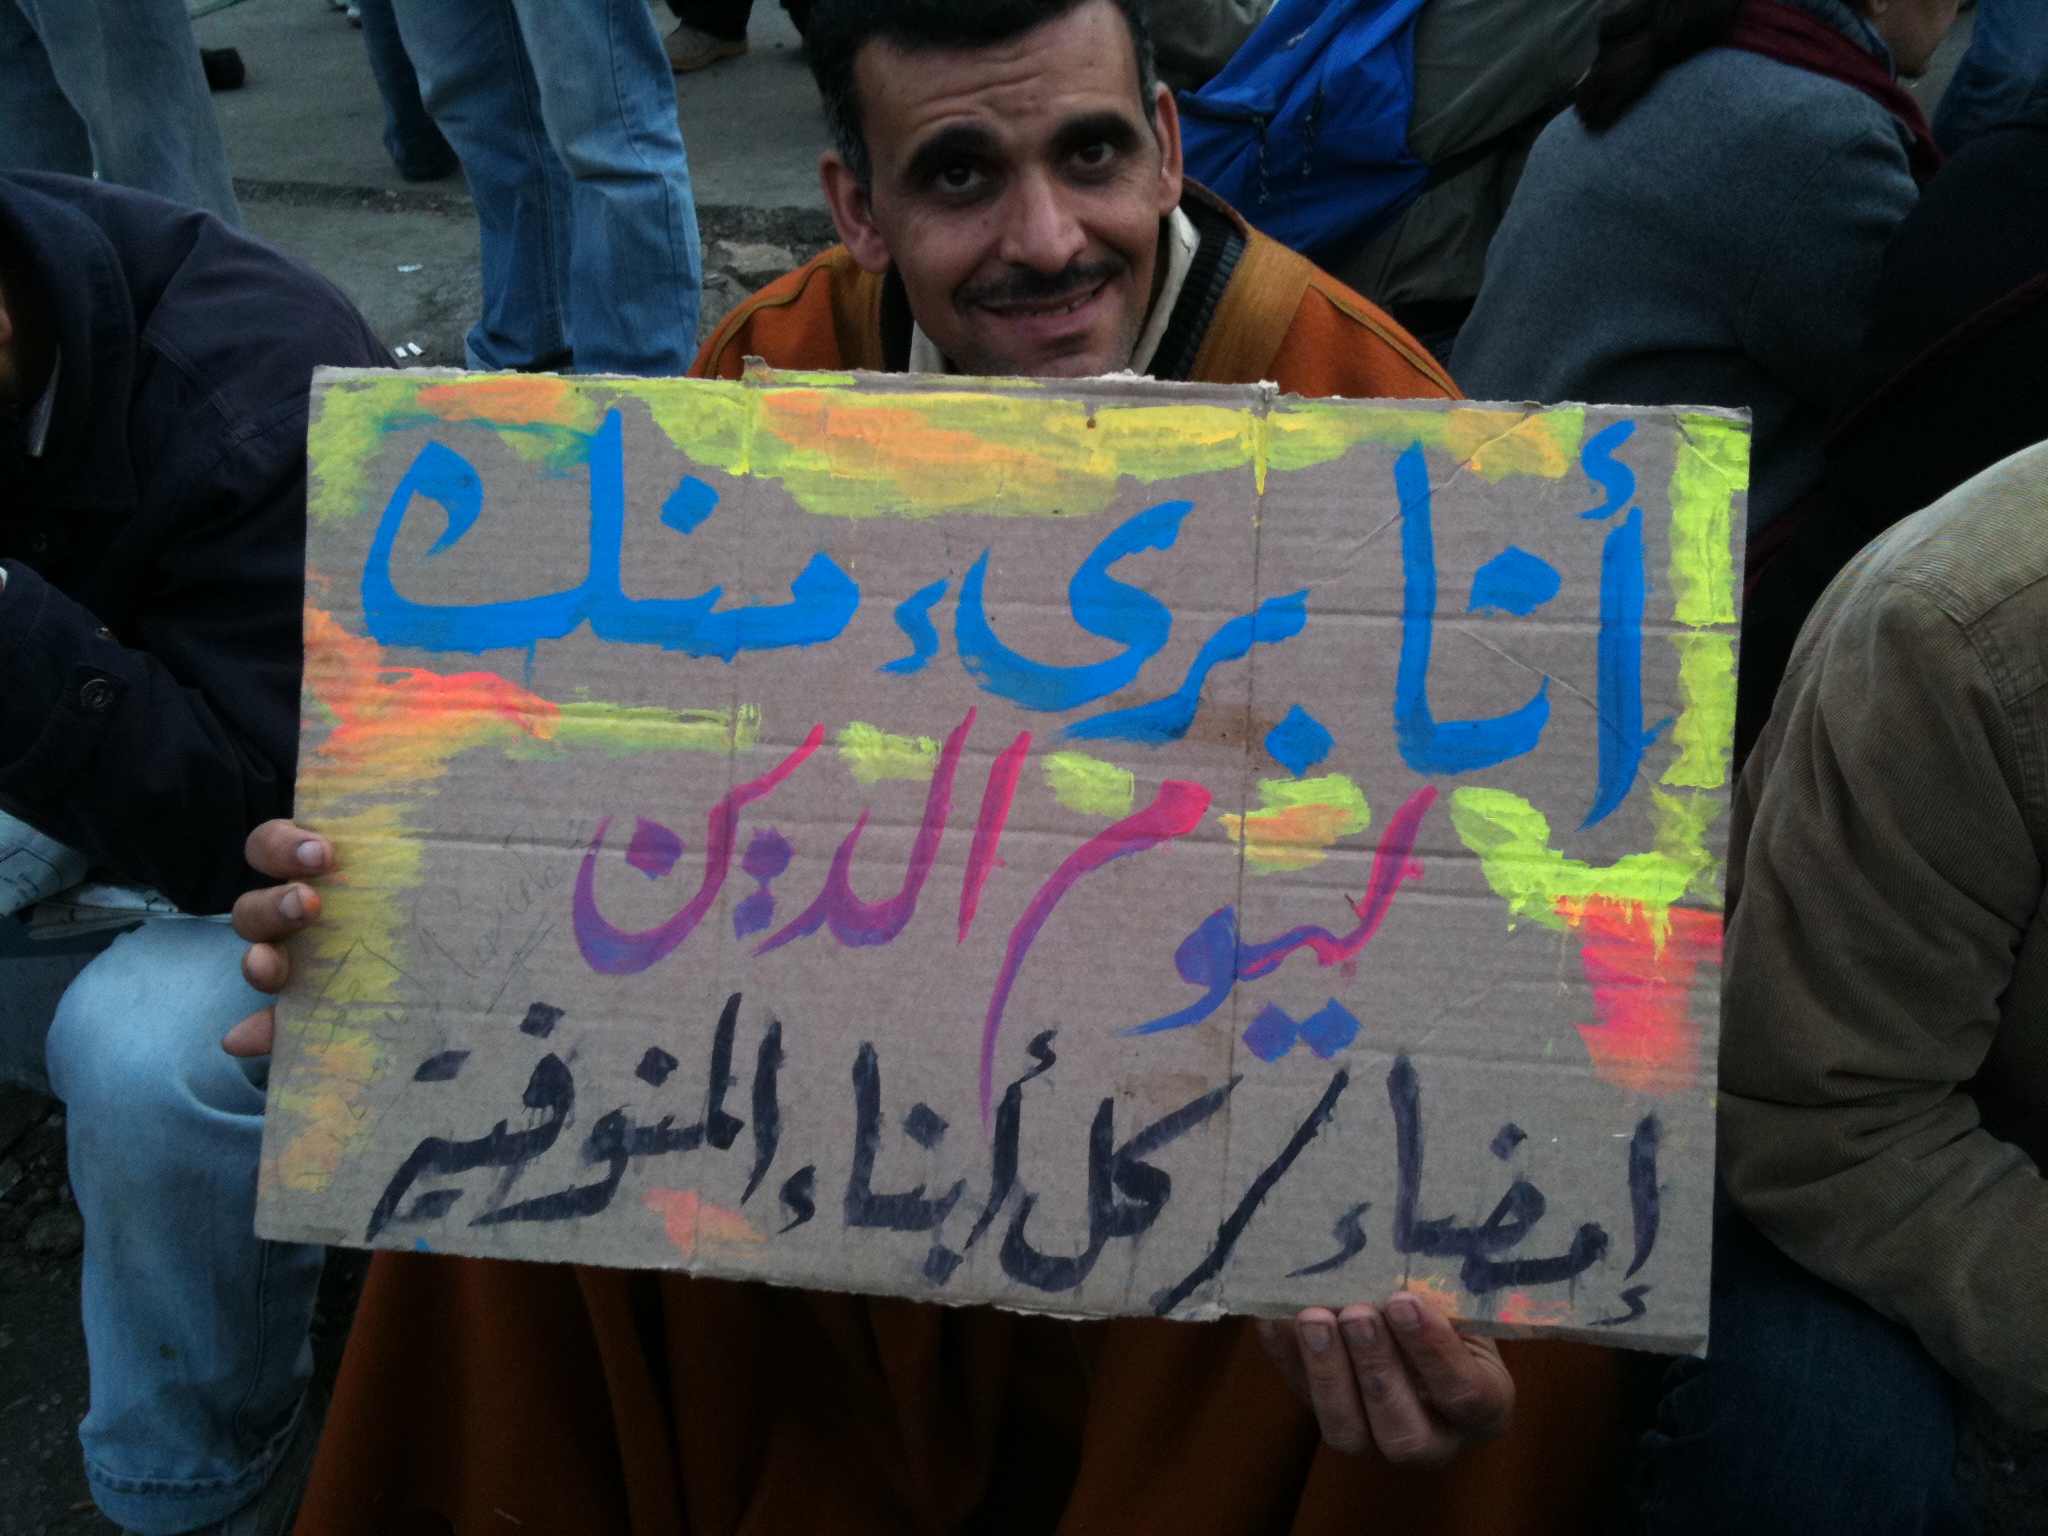 أنا برىء منك
ليوم الدين
إمضاء / كل أبناء المنوفية